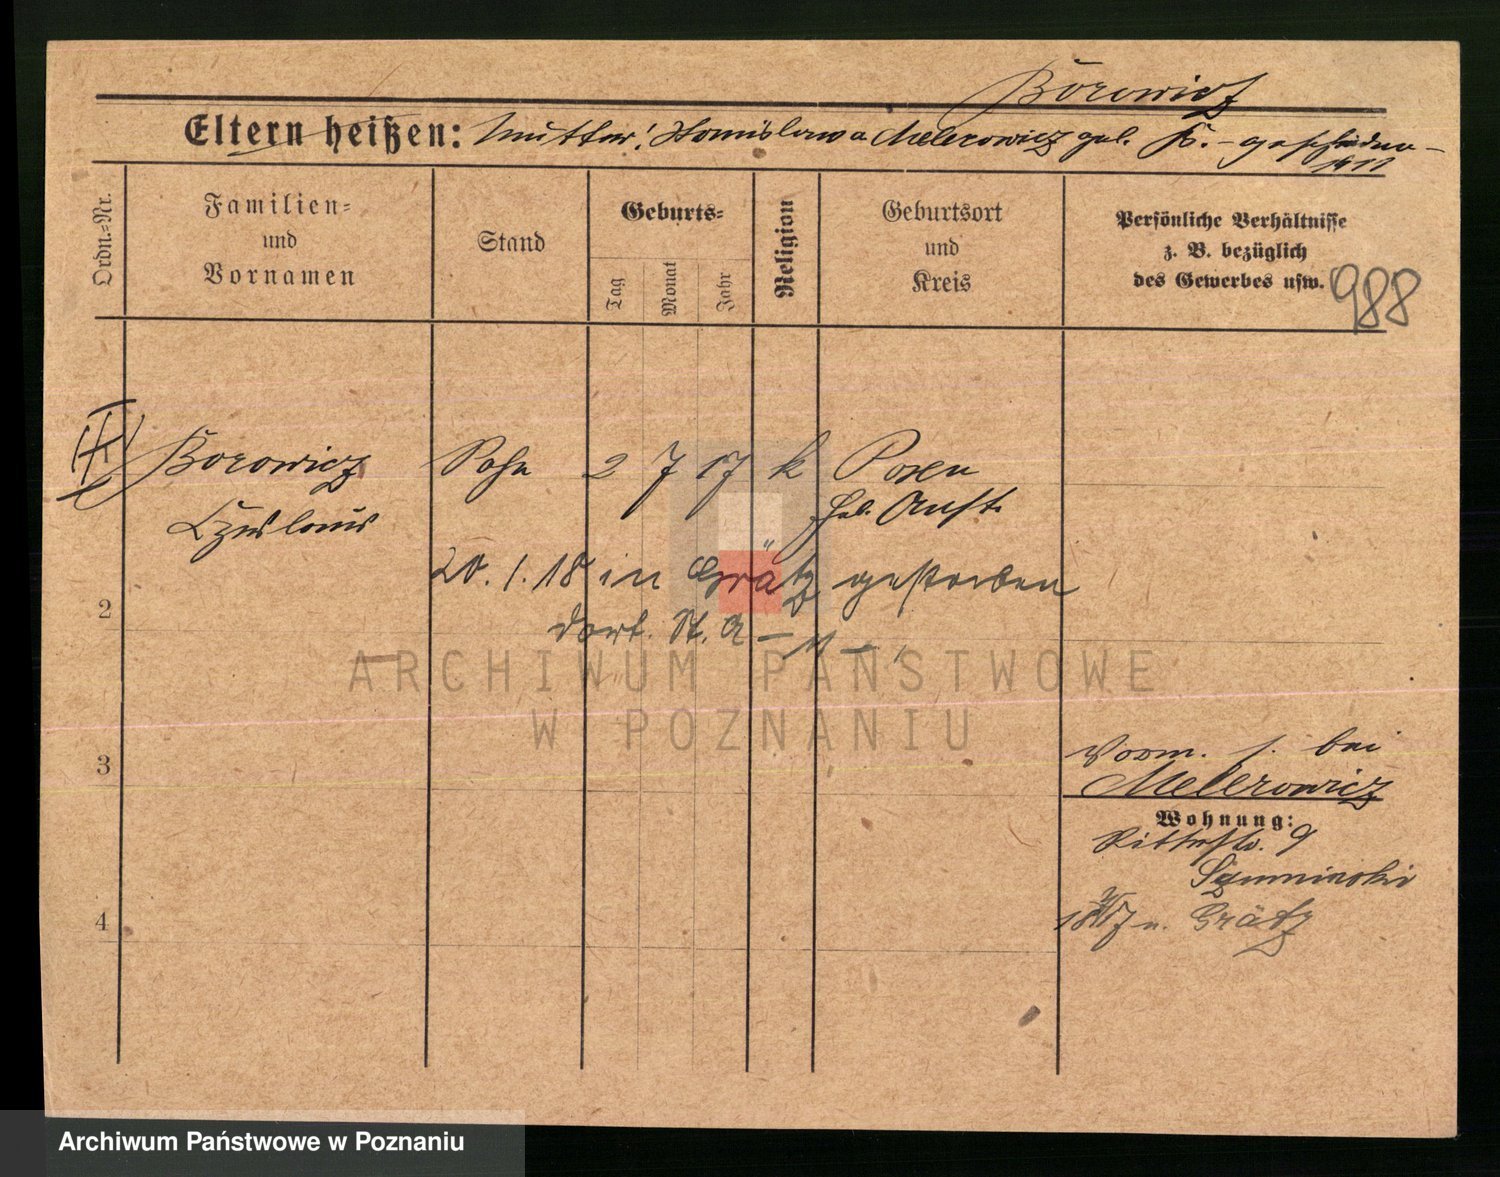 Borowicz
Eltern heißen: Mutter: Stanislawa Melerowicz geb. B. – geschiedene –
1911
Ordn.=Nr.
Familien=
und
Vornamen
Stand
Geburts=
Tag
Monat
Jahr
Religion
Geburtsort
und
Kreis
Persönliche Verhältnisse
z. B. bezüglich
des Gewerbes usw.
988
Borowicz Sohn 2 7 17 k Posen
Czeslaus Heb. Anst.
20. 1. 18 in Grätz gestorben
2
dort. St. A – 11 –
ARCHIWUM PAŃSTWOWE
W POZNANIU
3
Vorm. s. bei
Melerowicz
Wohnung:
Ritterstr. 9
4
n. Grätz
Archiwum Państwowe w Poznaniu